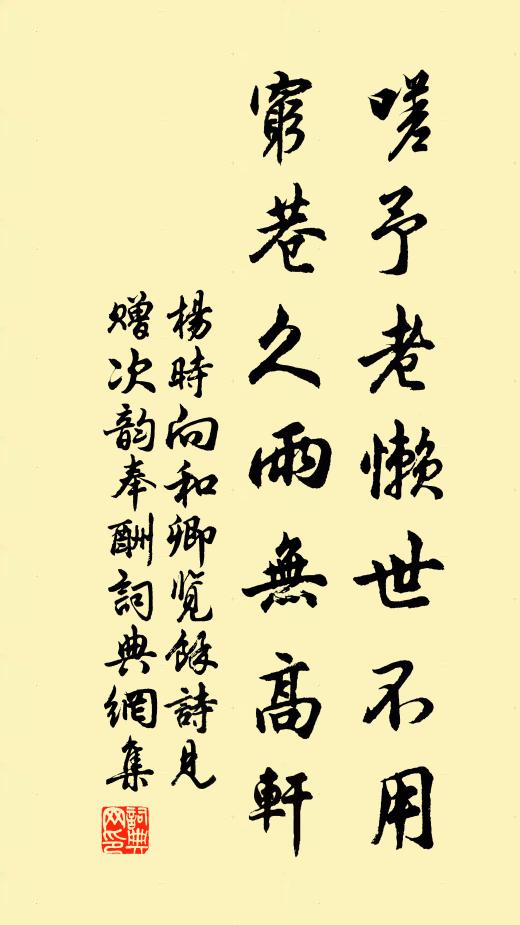 嗟予老懶世不用
窮巷久雨無高軒
楊時向和卿覽餘詩見
贈次韵奉酬詞典網集
詞典
网印